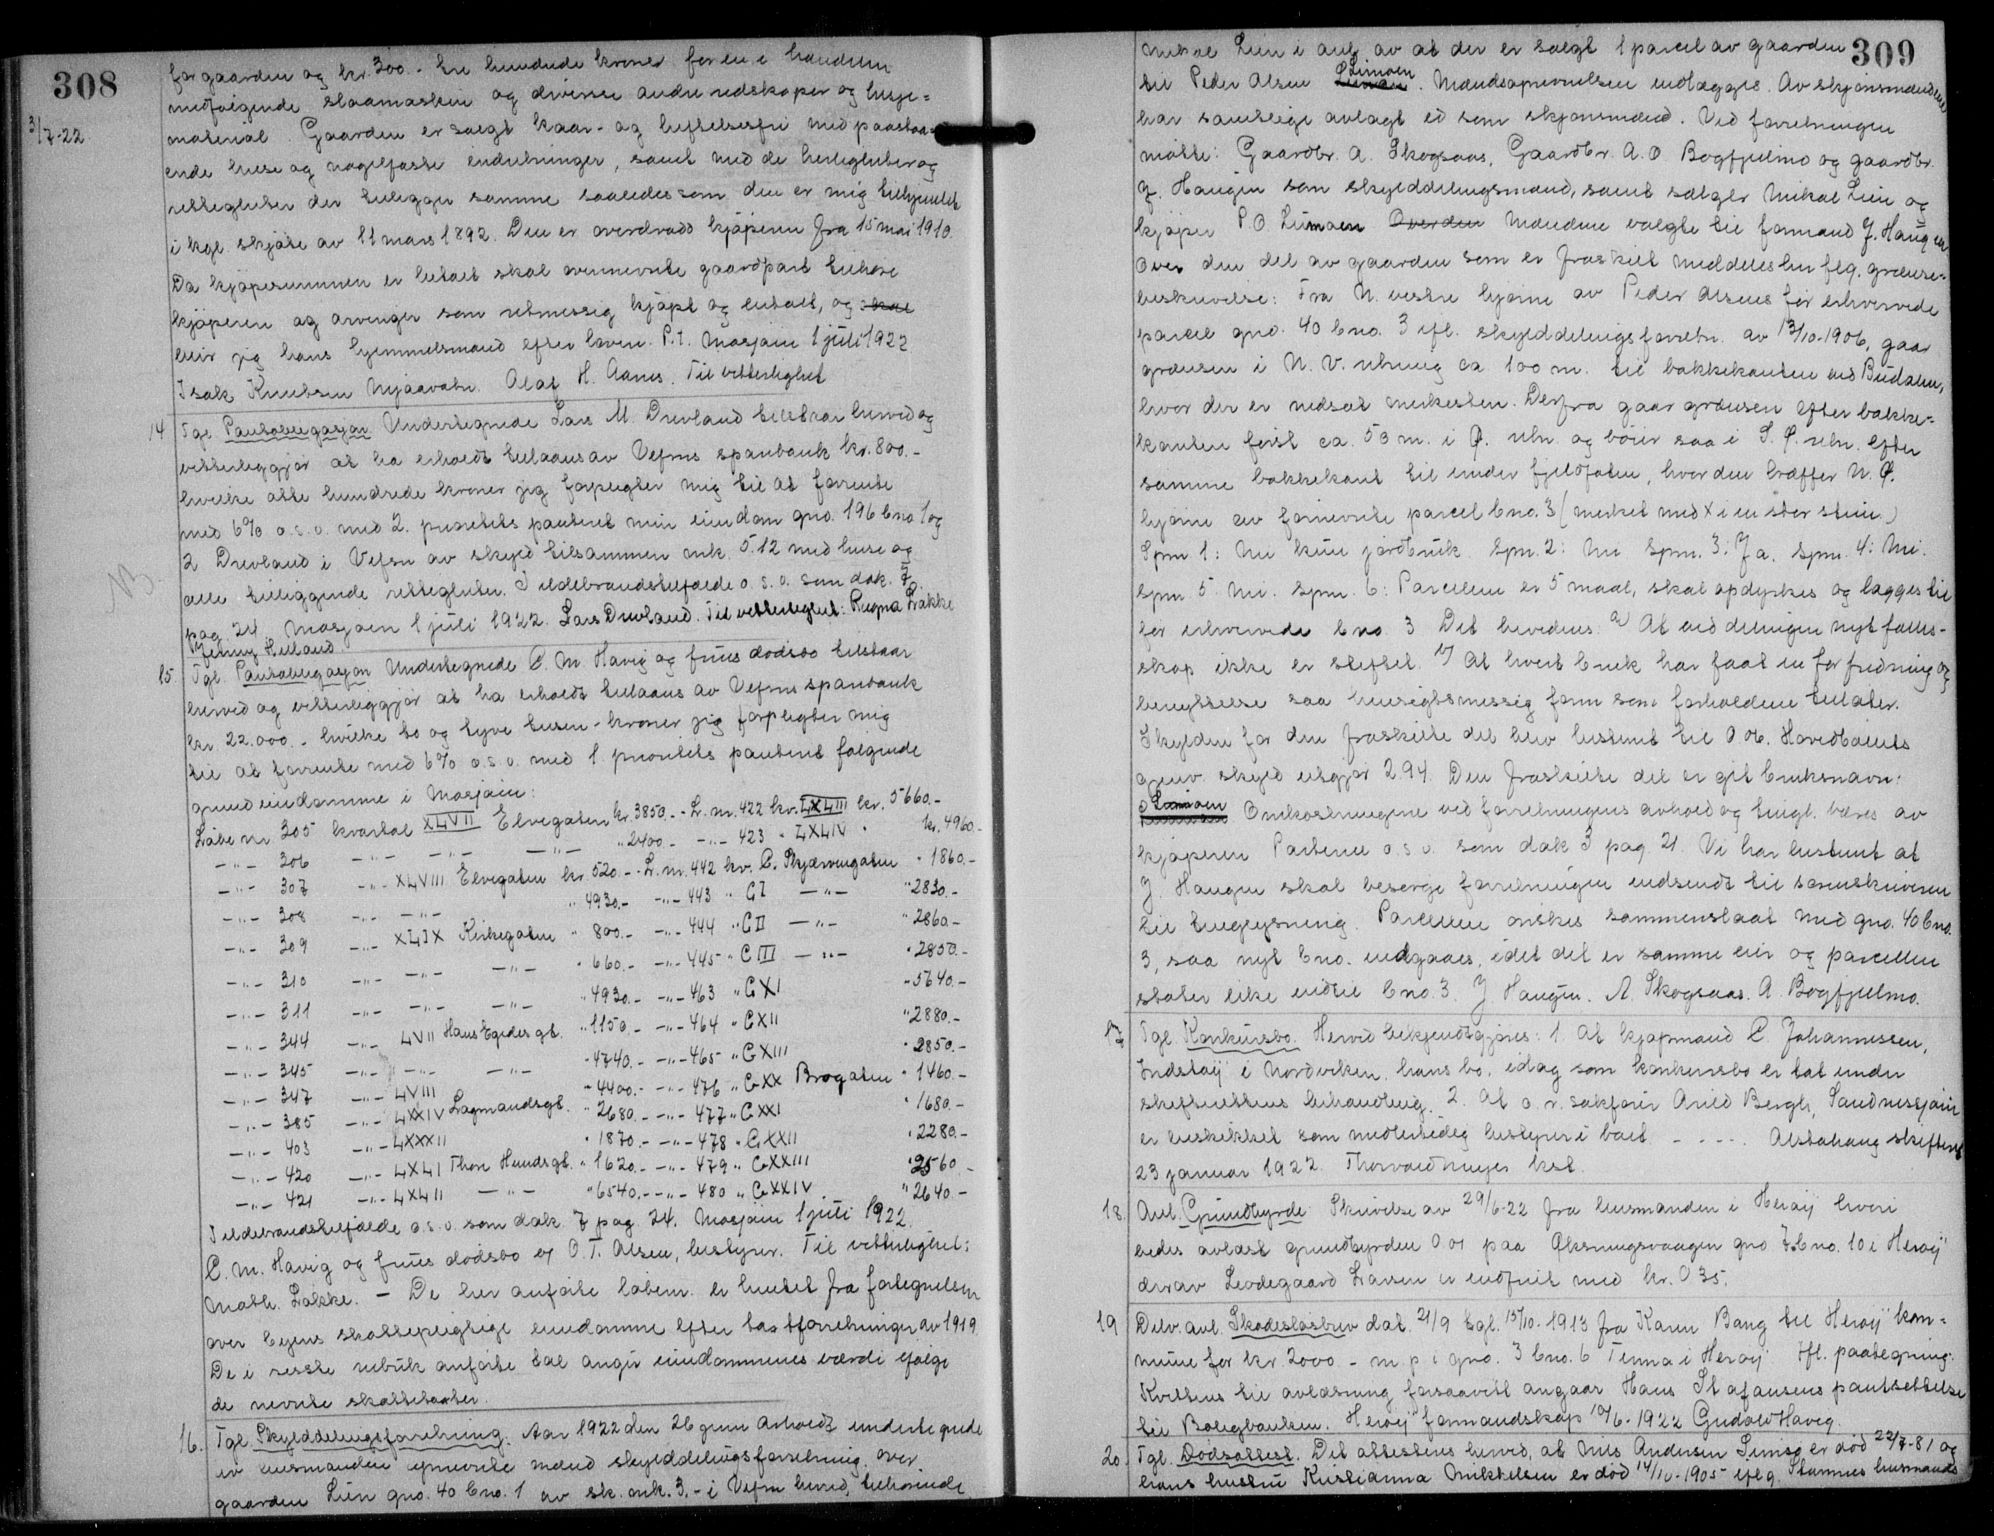 308
3/7-22
for gaarden og kr. 300.- tre hundrede kroner for en i handelen
medfølgende slaamaskin og diverse andre redskaper og hesje=
material. Gaarden er solgt kaar- og heftelsesfri med paastaa=
ende huse og nagelfaste indretninger, samt med de herligheter og
rettigheter der tilligger samme saaledes som den er mig tilhjemlet
i kgl. skjøte av 11 mars 1892. Den er overdradd kjøperen fra 15 mai 1910.
Da kjøpesummen er betalt skal ovennevnte gaardpart tilhøre
kjøperen og arvinger som retmessig kjøpt og betalt, og skal
blir jeg hans hjemmelsmand efter loven. P.t. Mosjøen 1 juli 1922
Isak Knutsen Mjaavatn. Olaf H. Aanes. Til vitterlighet
14 Tgl. Pantobligasjon. Undertegnede Lars M. Drevland tilstaar herved og
vitterliggjør at ha erholdt tillaans av Vefsns sparebank kr. 800.-
hvilke otte hundrede kroner jeg forpligter mig til at forrente
med 6% o.s.v. med 2. prioritets panteret min eiendom gno. 196 bno 1 og
2 Drevland i Vefsn av skyld tilsammen mk. 5.12 med huse og
alle tilliggende rettigheter. I ildebrandstilfælde o.s.v. som dok. 7
pag. 24. Mosjøen 1 juli 1922. Lars Drevland. Til vitterlighet: Ragna Løkke
Jenny Heiland
15. Tgl. Pantobligasjon Undertegnede C. M. Havig og frues dødsbo tilstaar
herved og vitterliggjør at ha erholdt tillaans av Vefsns sparebank
kr. 22.000.- hvilke to og tyve tusen - kroner jeg forpligter mig
til at forrente med 6% o.s.v. med 1. prioritets panteret følgende
grundeiendomme i Mosjøen:
Løbe nr 305 kvartal XLVII Elvegaten kr. 3850.- - L. nr. 422 kv. LXLIII kr. 5660.-
-"- 306 -"- -"- -"- " 2400.- -"- 423 " LXLIV " kr. 4960.-
-"- 307 -"- XLVIII Elvegaten kr 520.- - L. nr. 442 kv. C. Skjærvengaten " 1860.-
-"- 308 -"- -"- " 4930.- -"- 443 " CI -"- " 2830.-
-"- 309 -"- XLIX Kirkegaten " 800.- -"- 444 " CII -"- " 2860.-
-"- 310 -"- -"- -"- " 660.- -"- 445 " CIII -"- " 2850.-
-"- 311 -"- -"- -"- " 4930.- -"- 463 " CXI " 5640.-
-"- 344 -"- LVII Hans Egedes gt. " 1150.- -"- 464 " CXII " 2880.-
-"- 345 -"- -"- -"- " 4740.- -"- 465 " CXIII " 2850.-
-"- 347 -"- LVIII " 4400.- -"- 476 " CXX Brogaten " 1460.-
-"- 385 -"- LXXIV Lagmandsgt. " 2680.- -"- 477 " CXXI " 1680.-
-"- 403 -"- LXXXII " 1870.- -"- 478 " CXXII " 2280.-
-"- 420 -"- LXLI Thore Hundsgt. " 1620.- -"- 479 " CXXIII " 2560.-
-"- 421 -"- LXLII -"- " 6540.- -"- 480 " CXXIV " 2640.-
I ildebrandstilfælde o.s.v. som dok. 7 pag. 24. Mosjøen 1 juli 1922.
C. M. Havig og frues dødsbo ef O. T. Olsen, bestyrer. Til vitterlighet:
Math. Løkke. - De her anførte løbenr. er hentet fra fortegnelsen
over byens skattepligtige eiendomme efter takstforretninger av 1919.
De i siste rubrik anførte tal angir eiendommenes værdi ifølge
de nevnte skattetakster.
16. Tgl. Skylddelingsforretning. Aar 1922 den 26 juni avholdt undertegnede
av lensmanden opnevnte mænd skylddelingsforretning over
gaarden Lien gno. 40 bno. 1 av sk. mk. 3.- i Vefsn herred, tilhørende
309
Mikal Lien i anl. av at der er solgt 1 parcel av gaarden
til Peder Olsen Limoen. Mændsopnevnelsen vedlægges. Av skjønsmændene
har samtlige avlagt ed som skjønsmænd. Ved forretningen
møtte: Gaardbr. A. Skogsaas, Gaardbr. A. O. Bogfjelmo og gaardbr.
J. Haugen som skylddelingsmænd, samt sælger Mikal Lien og
kjøper P. O Limoen Over den Mændene valgte til formand J. Haugen
Over den del av gaarden som er fraskilt meddeles her flg. grænse-
beskrivelse: Fra N. vestre hjørne av Peder Olsens før erhvervede
parcel gno. 40 bno. 3 ifl. skylddelingsforretn. av 13/10-1906, gaar
grænsen i N. V. retning ca 100 m. til bakkekanten ved Budalen,
hvor der er nedsat merkesten. Derfra gaar grænsen efter bakke-
kanten først ca. 53 m. i Ø. retn. og bøier saa i S. Ø. retn. efter
samme bakkekant til under fjeldfoten, hvor den træffer N. Ø.
hjørne av førnevnte parcel bno. 3 (merket med X i en stor sten.)
Spm 1: Nei kun jordbruk. Spm. 2: Nei Spm. 3: Ja. Spm. 4: Nei.
Spm. 5 Nei. Spm. 6: Parcellen er 5 maal, skal opdyrkes og lægges til
før erhvervede bno. 3 Det bevidnes: a) At ved delingen nyt fælles-
skap ikke er stiftet. b) At hvert bruk har faat en for fredning og
benyttelse saa hensigtsmessig form som forholdene tillater.
Skylden for den fraskilte del blev bestemt til 0.06. Hovedbølets
gjenv. skyld utgjør 2.94. Den fraskilte del er git bruksnavn:
Limoen Omkostningene ved forretningens avhold og tingl. bæres av
kjøperen Partene o.s.v. som dok 3 pag. 21. Vi har bestemt at
J. Haugen skal besørge forretningen indsendt til sorenskriveren
til tinglysning. Parcellen ønskes sammenslaat med gno. 40 bno.
3, saa nyt bno. undgaaes, idet det er samme eier og parcellen
støter like indtil bno. 3. J Haugen. A. Skogsaas. A. Bogfjelmo.
17. Tgl. Konkursbo. Herved bekjendtgjøres: 1. At kjøpmand C. Johannessen,
Indstøy i Nordviken, hans bo. idag som konkursbo er tat under
skifterettens behandling. 2. At o.r.sakfører Arild Bergh, Sandnessjøen
er beskikket som midlertidig bestyrer i boet. - - - - . Alstahaug skifteret
23 januar 1922. Thorvald Meyer kst.
18. Anl. Grundbyrde. Skrivelse av 29/6-22 fra lensmanden i Herøy hvori
bedes avlæst grundbyrden 0.01 paa Øksningsvaagen gno 7 bno. 10 i Herøy
derav Leodegaard Larsen er indfriet med kr. 0.35.
19 Delv. avl. Skadesløsbrev dat. 21/9 tgl. 15/10-1913 fra Karen Bang til Herøy kom=
mune for kr. 2000.- m. p. i gno. 3 bno. 6 Tenna i Herøy. Ifl. paategning:
Kvitteres til avlæsning forsaavidt angaar Hans Stafansens pantsettelse
til Boligbanken. Herøy formandskap 10/6-1922 Gudolf Havig.
20. Tgl. Dødsattest. Det attesteres herved, at Nils Andersen Simsø er død 22/7-81 og
hans hustru Kristianna Mikkelsen er død 14/10-1905 iflg. Stamnes lensmands